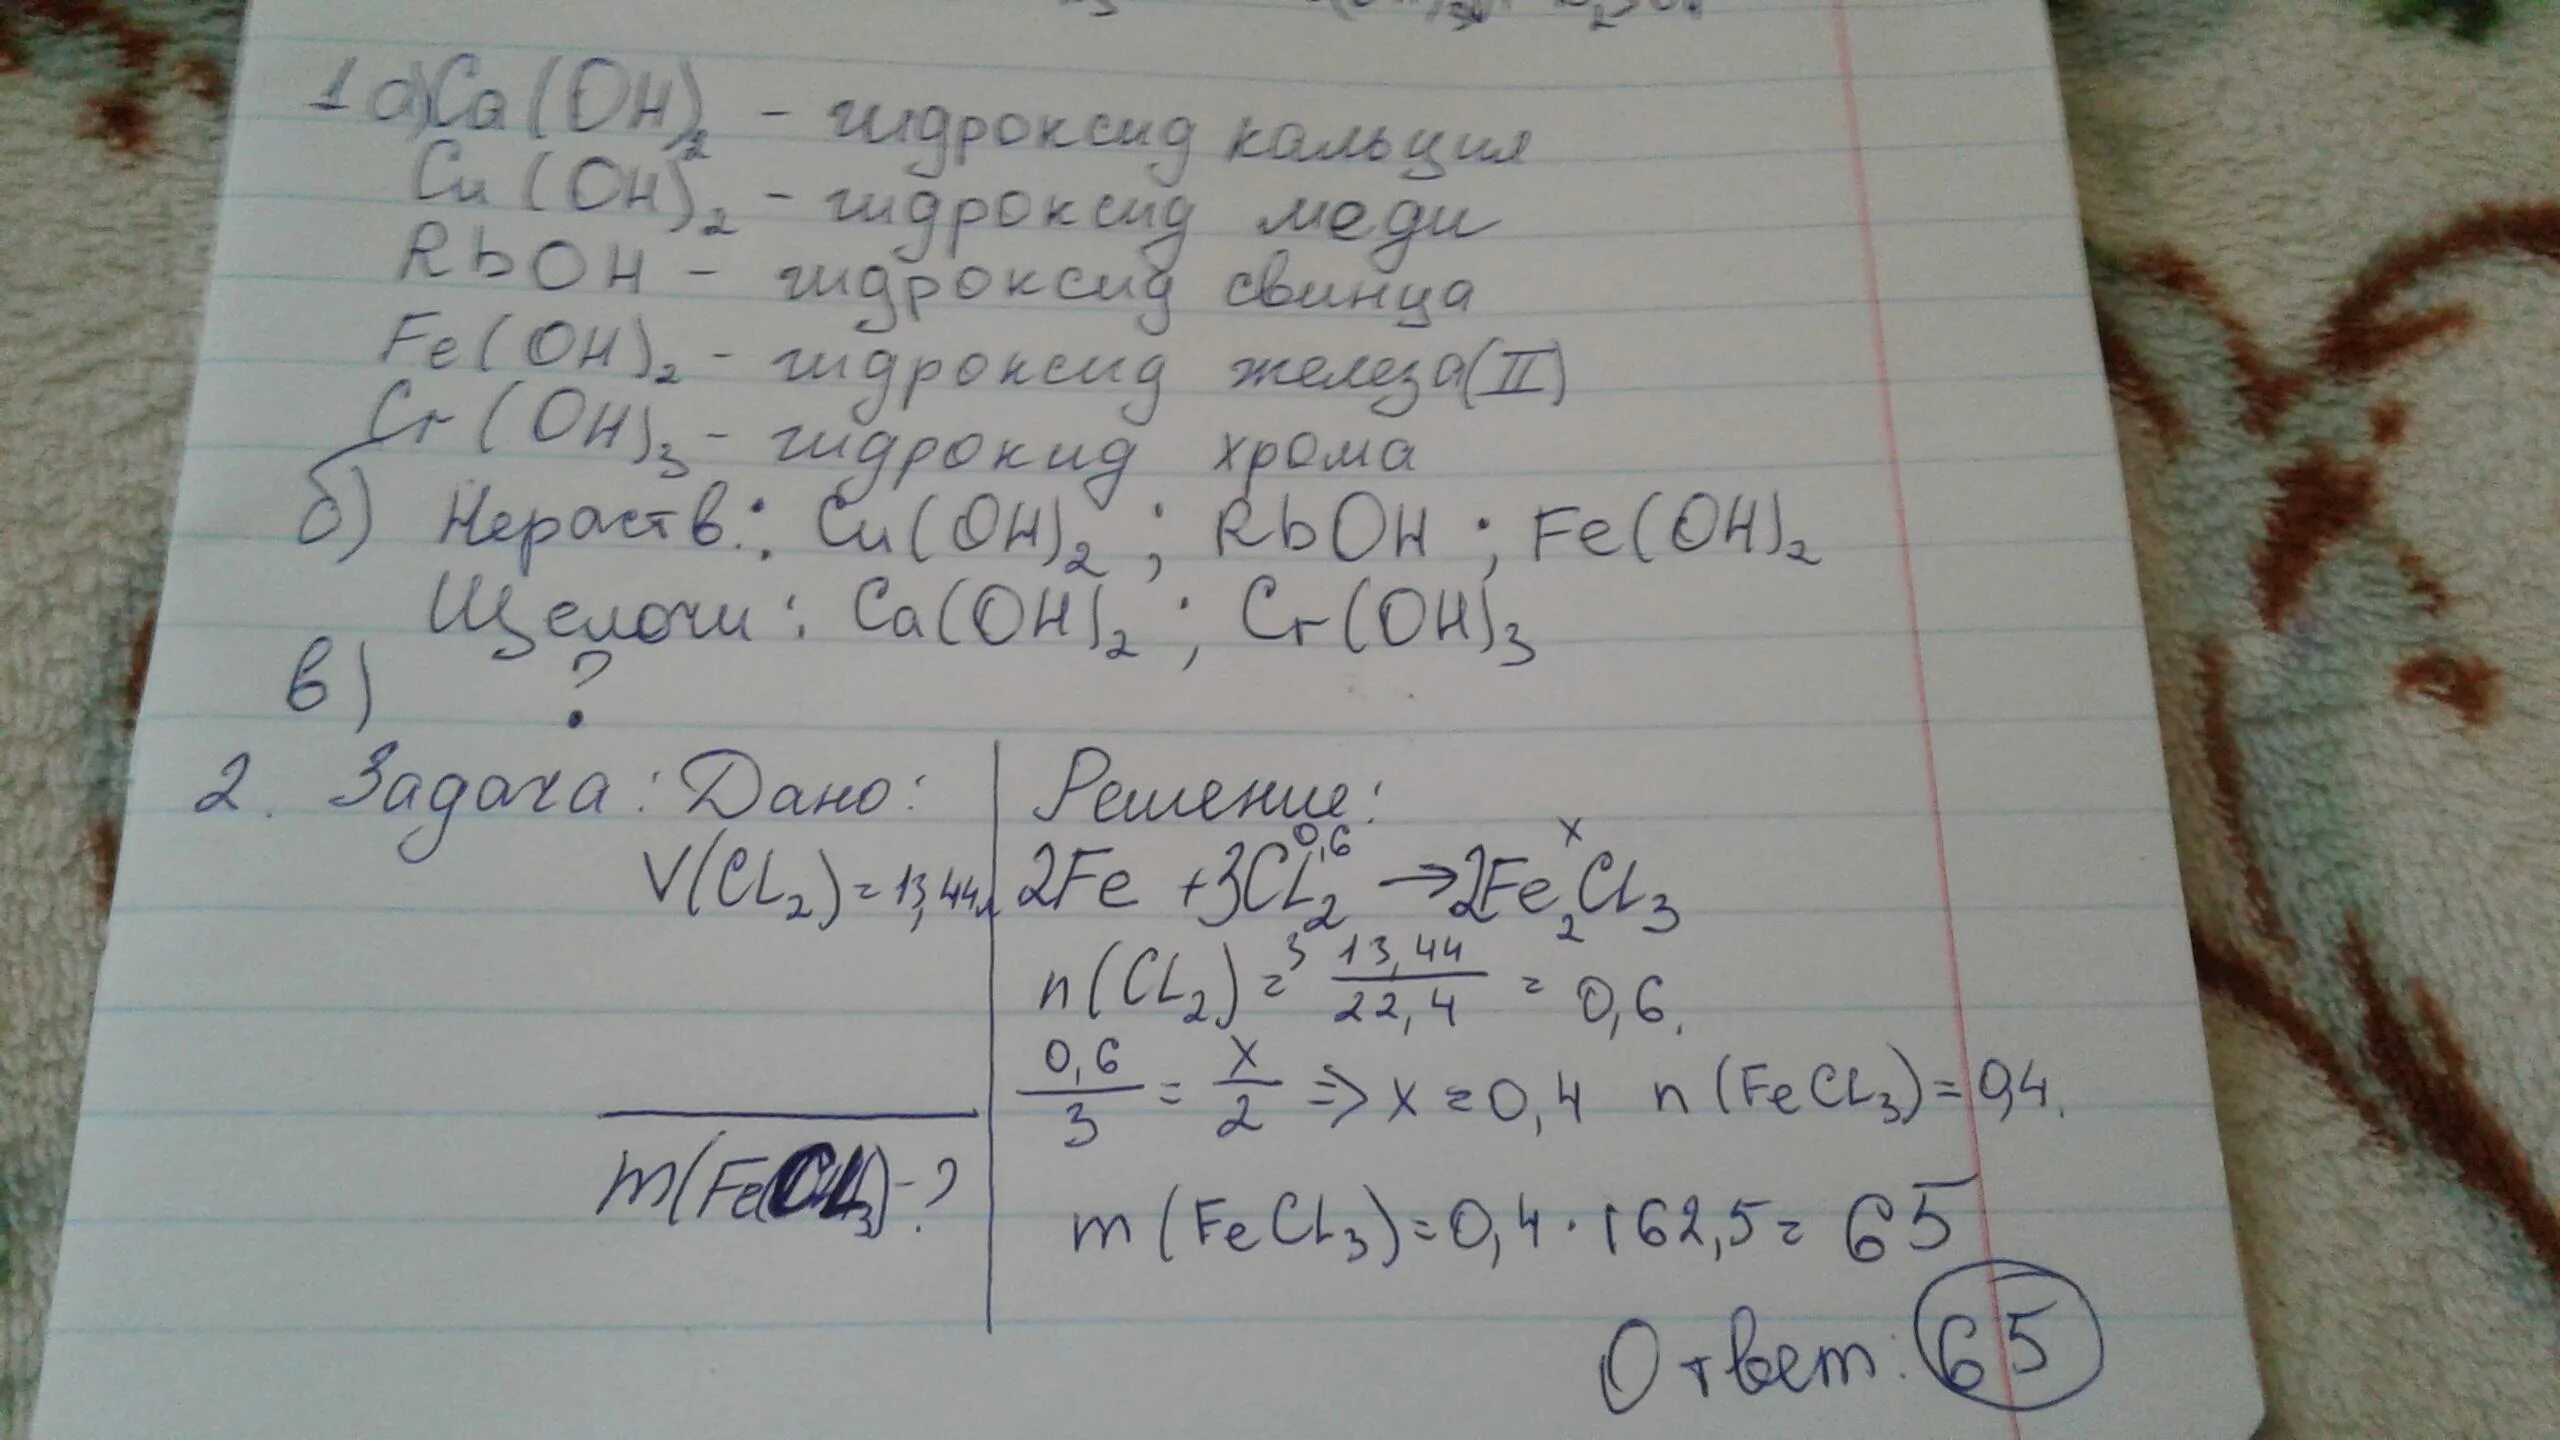 1 а) Ca(OH)2 - гидроксид кальция
Cu(OH)2 - гидроксид меди
RbOH - гидроксид свинца
Fe(OH)2 - гидроксид железа(II)
Cr(OH)3 - гидрокид хрома
б) Нераств.: Cu(OH)2 ; RbOH ; Fe(OH)2
Щелочи : Ca(OH)2 ; Cr(OH)3
в) ?
2. Задача : Дано:
V(CL2) = 13,44л
m(FeCL3) - ?
Решение:
0,6 x
2Fe + 3CL2 → 2Fe2CL3
3 2
n(CL2) = 13,44/22,4 = 0,6.
0,6/3 = x/2 => x = 0,4 n(FeCL3) = 0,4.
m(FeCL3) = 0,4 · 162,5 = 65
Ответ: 65